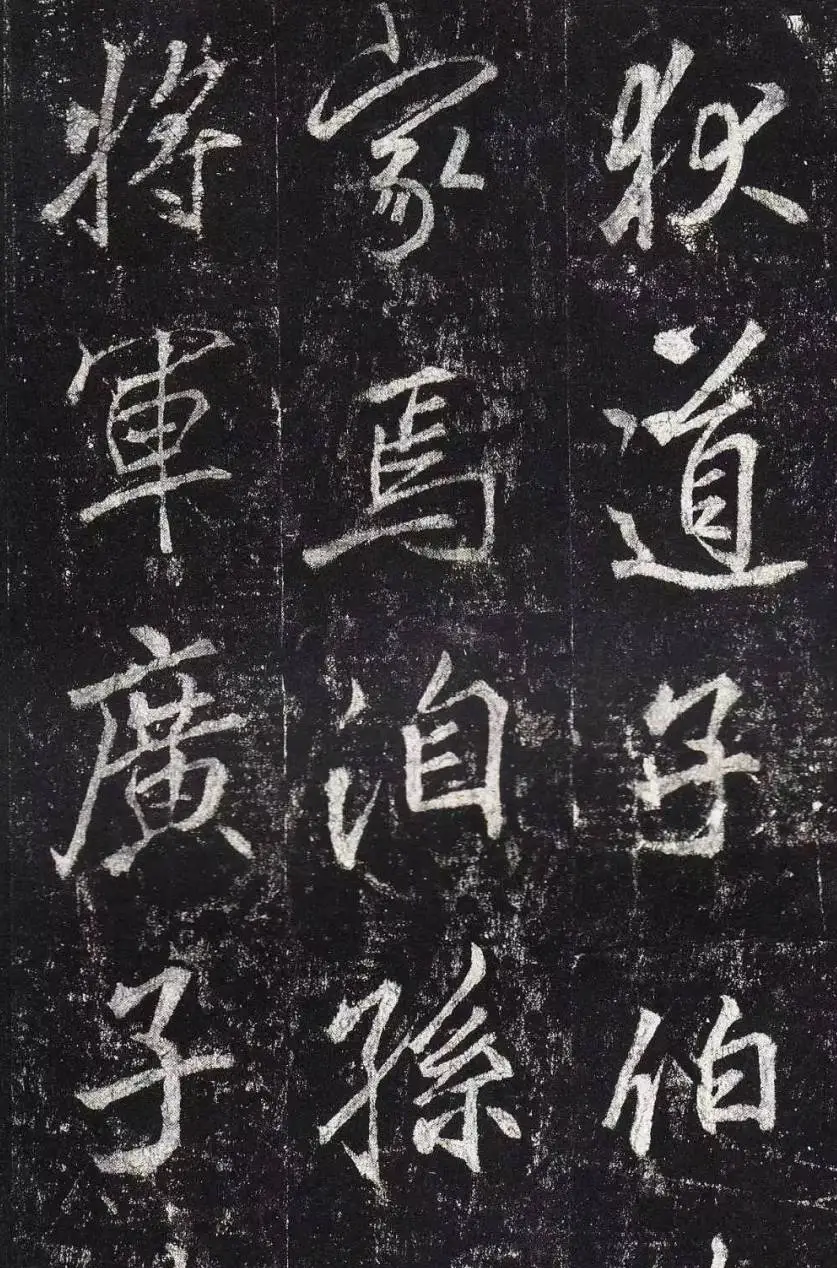 狄道子伯
家焉洎孫
將軍廣子